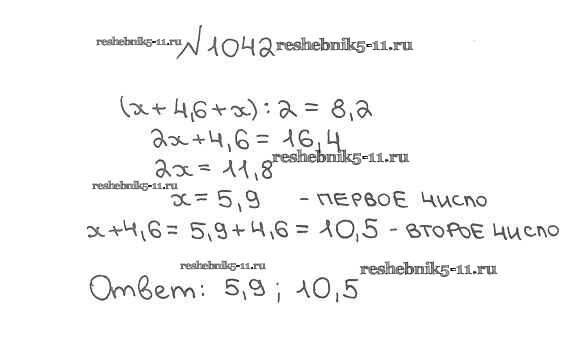 reshebnik5-11.ru №1042 reshebnik5-11.ru
(x+4,6+x):2 = 8,2
2x+4,6 = 16,4
reshebnik5-11.ru
2x = 11,8
reshebnik5-11.ru
x = 5,9 - ПЕРВОЕ ЧИСЛО
x+4,6 = 5,9+4,6 = 10,5 - ВТОРОЕ ЧИСЛО
reshebnik5-11.ru reshebnik5-11.ru
Ответ: 5,9 ; 10,5